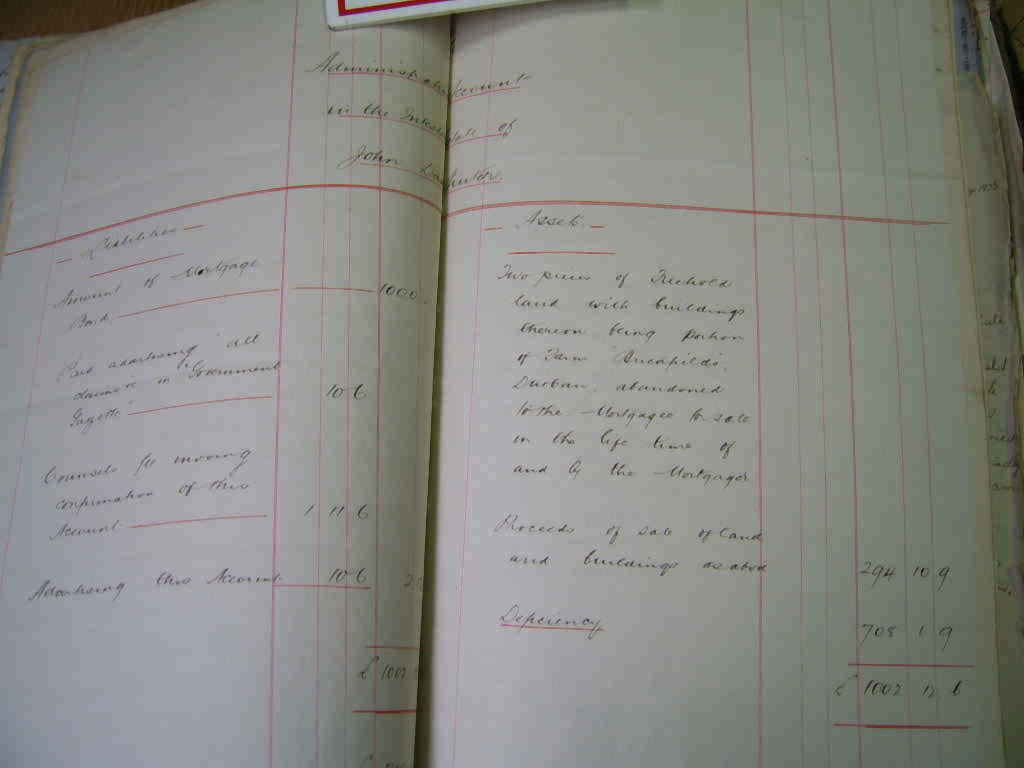 Administration Account
in the Intestate of
John
Liabilities
Amount of Mortgage
Bond 1000
Paid advertising "All
claims" in "Government
Gazette" 10 6
Counsels fee moving
confirmation of this
Account 1 11 6
Advertising this Account 10 6
£ 1002
Assets.
Two pieces of Freehold
land with buildings
thereon being portion
of Farm
Durban, abandoned
to the Mortgagee for sale
in the life time of
and by the Mortgagor
Proceeds of sale of land
and buildings as above 294 10 9
Deficiency 708 1 9
£ 1002 12 6